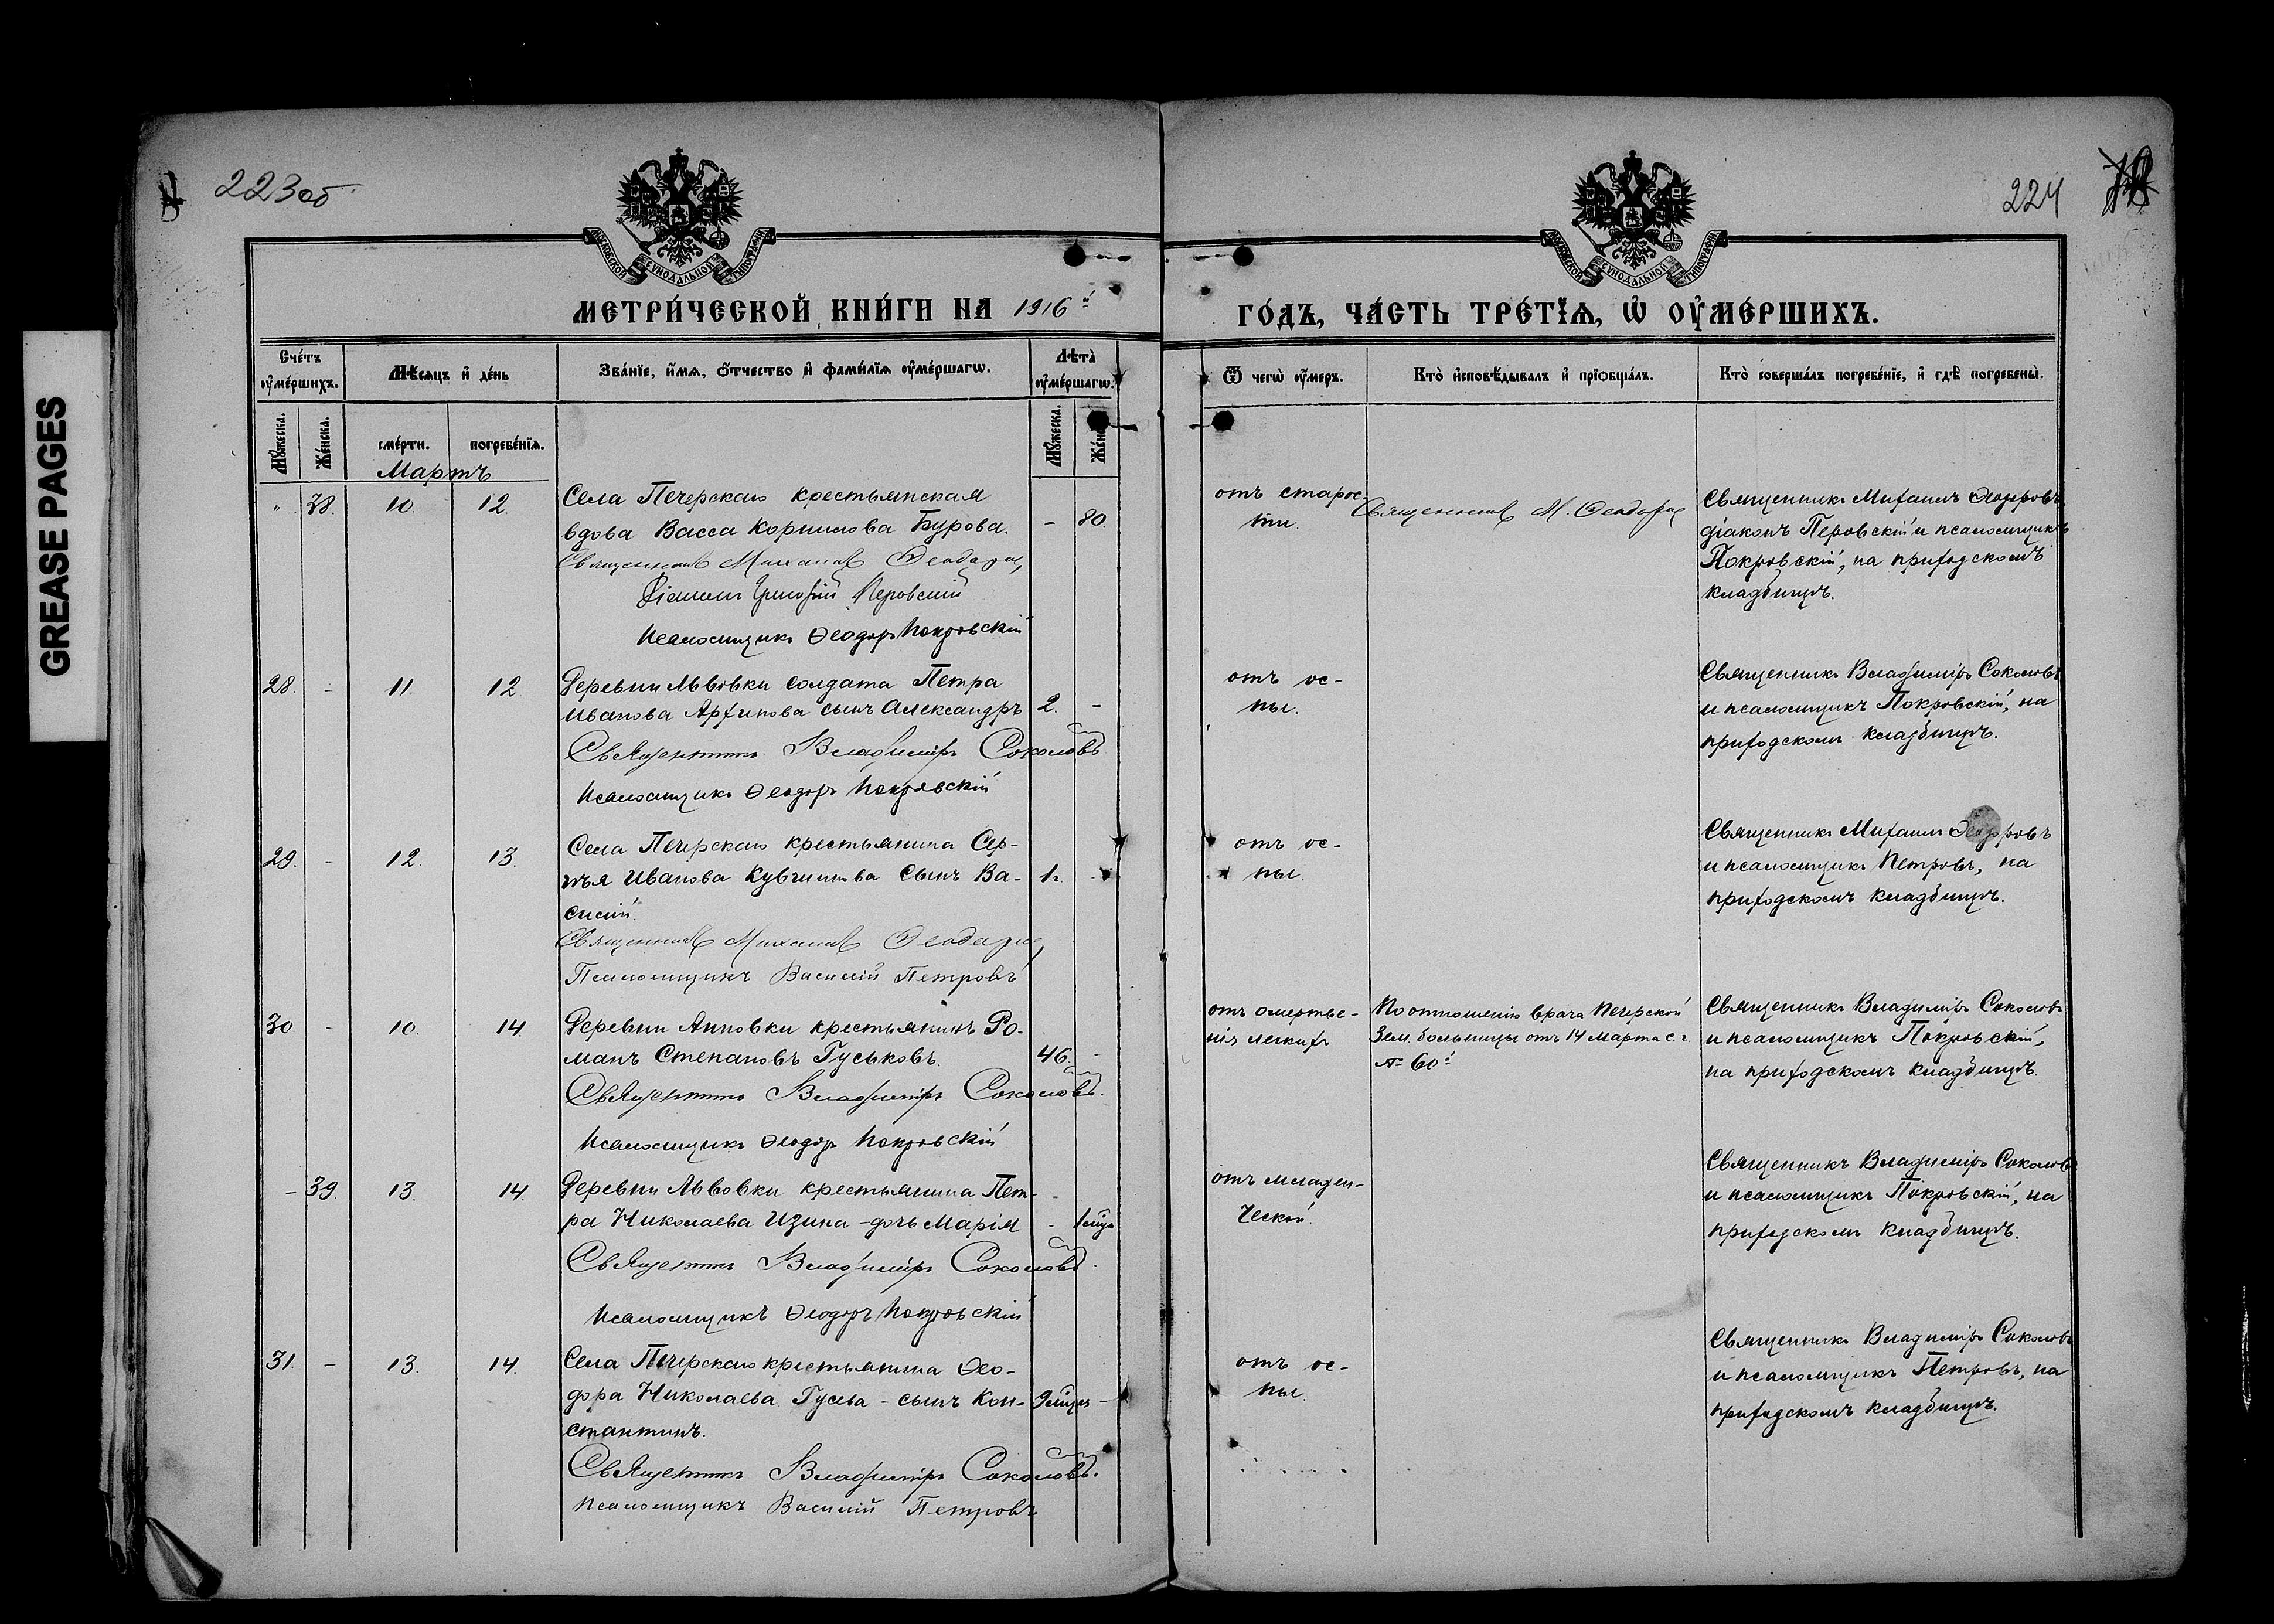 GREASE PAGES
223об
224
МОСКОВСКОЙ СѴНОДАЛЬНОЙ ТИПОГРАФІИ
МОСКОВСКОЙ СѴНОДАЛЬНОЙ ТИПОГРАФІИ
МЕТРИ́ЧЕСКОЙ КНИ́ГИ НА 1916й
ГО́ДЪ, ЧА́СТЬ ТРЕ́ТЇѦ, Ѡ҆ ОУ҆МЕ́РШИХЪ.
Сче́тъ оу҆ме́ршихъ.
Мѣ́сяцъ и҆ де́нь
Зва́нїе, и҆́мѧ, ѻ҆́тчество и҆ фами́лїѧ оу҆ме́ршагѡ.
Лѣта̀ оу҆ме́ршагѡ.
Ѿ чегѡ̀ оу҆́меръ.
Кто̀ и҆сповѣ́дывалъ и҆ прїѻбща́лъ.
Кто̀ соверша́лъ погребе́нїе, и҆ гдѣ̀ погребены̀.
Мꙋ́жеска.
Же́нска.
сме́рти.
погребе́нїѧ.
Мꙋ́жеска.
Же́н
Мартъ
" 38. 10. 12. Села Печерскаго крестьянская
вдова Васса Корнилова Бурова. - 80.
Священникъ Михаилъ Ѳеодоровъ,
Діаконъ Григорій Перовскій
Псаломщикъ Ѳеодоръ Покровскій
отъ старос-
ти.
Священникъ М. Ѳеодоровъ
Священникъ Михаилъ Ѳеодоровъ,
діаконъ Перовскій и псаломщикъ
Покровскій, на приходскомъ
кладбищѣ.
28. - 11. 12. Деревни Львовки солдата Петра
Иванова Архипова сынъ Александръ 2. -
Священникъ Владиміръ Соколовъ
Псаломщикъ Ѳеодоръ Покровскій
отъ ос-
пы.
Священникъ Владиміръ Соколовъ
и псаломщикъ Покровскій, на
приходскомъ кладбищѣ.
29. - 12. 13. Села Печерскаго крестьянина Сер-
гѣя Иванова Кувшинова сынъ Ва- 1г.
силій.
Священникъ Михаилъ Ѳеодоровъ
Псаломщикъ Василій Петровъ
отъ ос-
пы.
Священникъ Михаилъ Ѳеодоровъ
и псаломщикъ Петровъ, на
приходскомъ кладбищѣ.
30 - 10. 14. Деревни Анновки крестьянинъ Ро-
манъ Степановъ Гуськовъ. 46. -
Священникъ Владиміръ Соколовъ.
Псаломщикъ Ѳеодоръ Покровскій
отъ омертве-
нія легкихъ
По отношенію врача Печерской
Зем. больницы отъ 14 Марта с. г.
№ 60й
Священникъ Владиміръ Соколовъ
и псаломщикъ Покровскій,
на приходскомъ кладбищѣ.
- 39. 13. 14. Деревни Львовки крестьянина Пет-
ра Николаева Изина - дочь Марія - 1 мѣся
Священникъ Владиміръ Соколовъ.
Псаломщикъ Ѳеодоръ Покровскій
отъ младен-
ческой.
Священникъ Владиміръ Соколовъ
и псаломщикъ Покровскій, на
приходскомъ кладбищѣ.
31. - 13. 14. Села Печерскаго крестьянина Ѳео-
дора Николаева Гусева - сынъ Кон- 9 мѣсяц -
стантинъ.
Священникъ Владиміръ Соколовъ.
Псаломщикъ Василій Петровъ
отъ ос-
пы.
Священникъ Владиміръ Соколовъ
и псаломщикъ Петровъ, на
приходскомъ кладбищѣ.